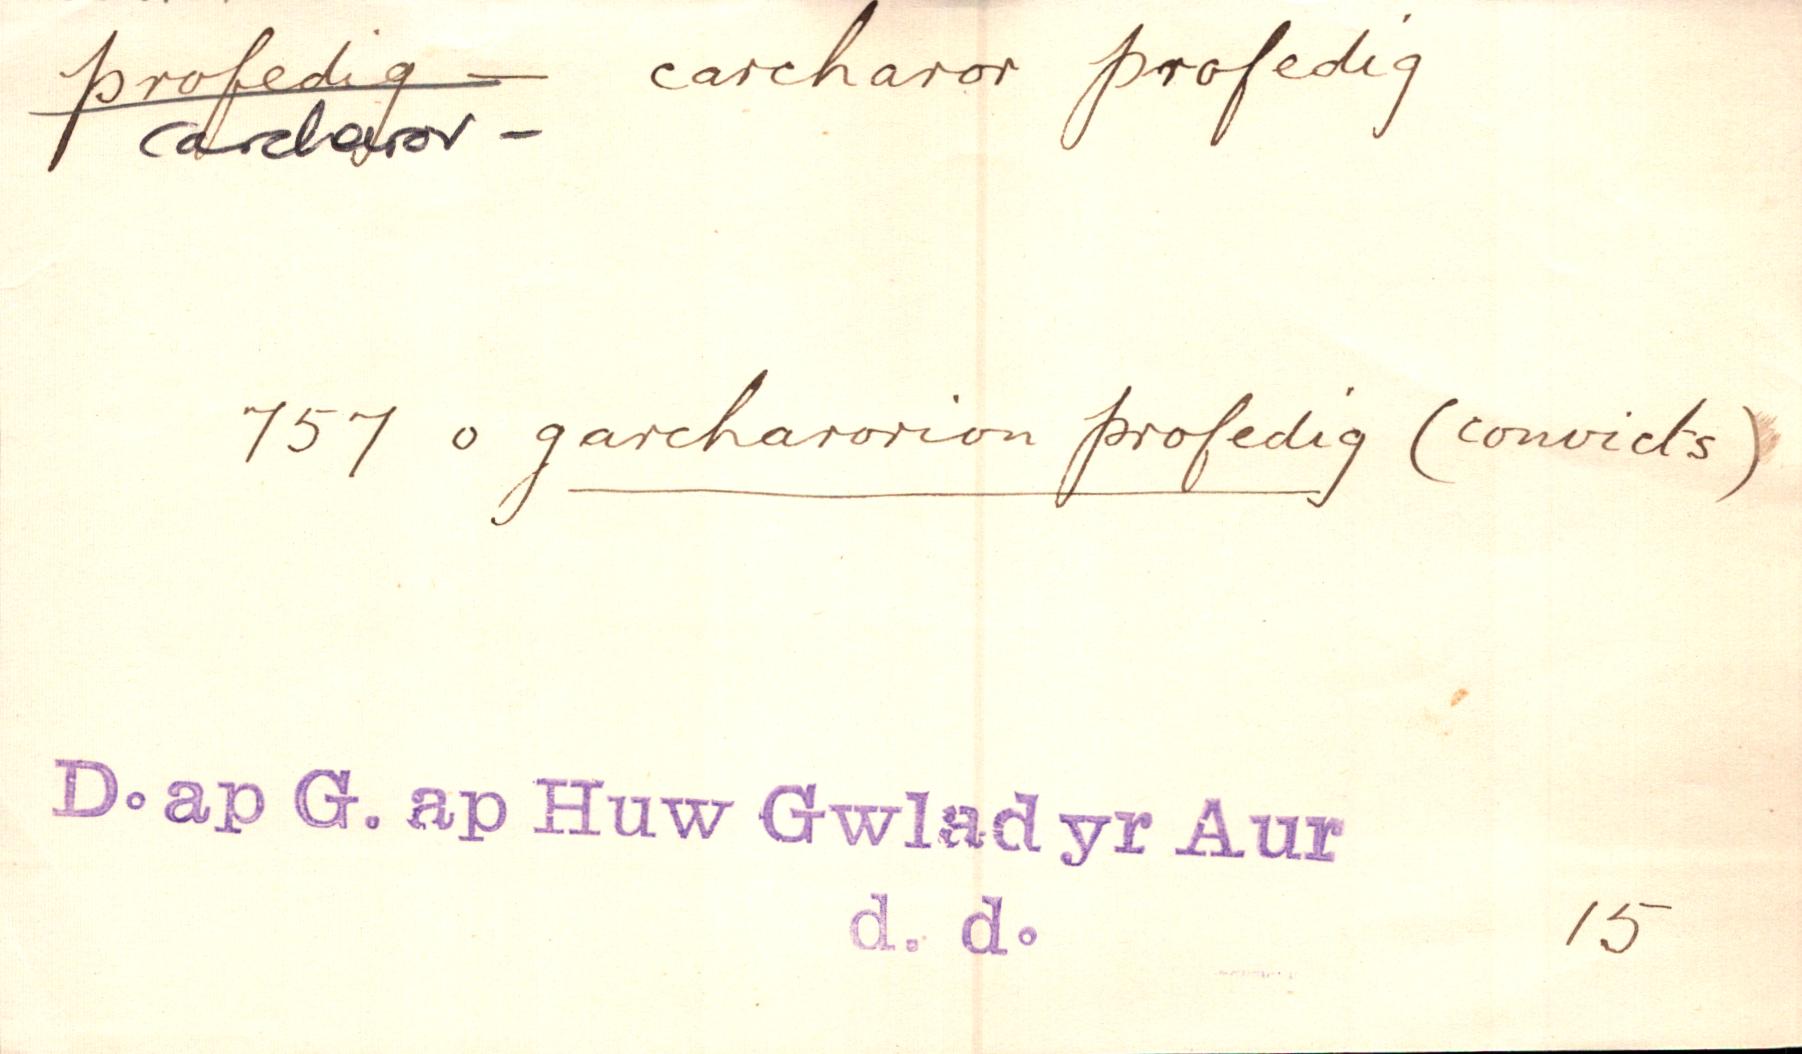 profedig — carcharor profedig
carcharor -
757 o garcharorion profedig (convicts)
D. ap G. ap Huw Gwlad yr Aur
d. d.
15